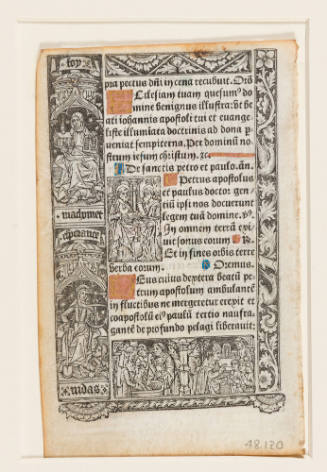 foy
madymet
esperance
iudas
pra pectus dñi in cena recubuit. Orõ
Eclesiam tuam quesumꝰ do
mine benignus illustra: vt be
ati iohannis apostoli tui et euange-
liste illumiata doctrinis ad dona p
ueniat sempiterna. Per dominũ no-
strum iesum christum. ꝛc.
De sanctis petro et paulo. añ.
Petrus apostolus
et paulus doctor gen
tiũ ipsi nos docuerunt
legem tuã domine. ℣.
In omnem terrã exi
uit sonus eorum ℟.
Et in fines orbis terre
verba eorum. Oremus.
Deus cuius dextera beatũ pe
trum apostolum ambulantẽ
in fluctibus ne mergeretur erexit et
coapostolũ eiꝰ paulũ tertio naufra-
gantẽ de profundo pelagi liberauit:
48.120